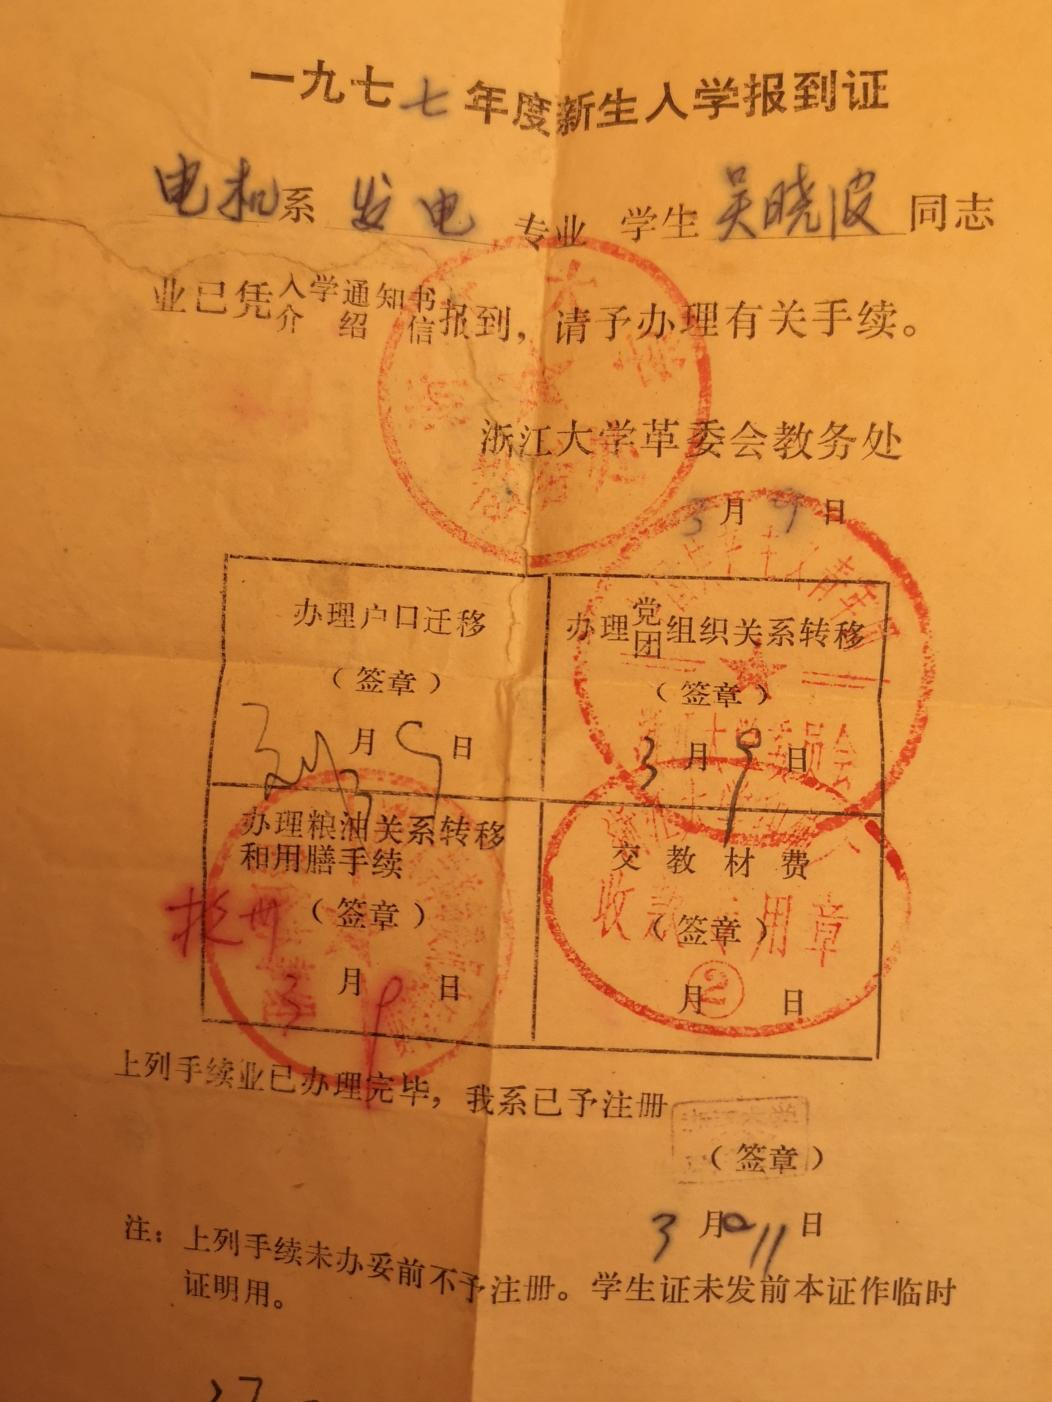 一九七七年度新生入学报到证
电机系 发电 专业 学生 吴晓波 同志
业已凭入学通知书
介绍信报到，请予办理有关手续。
浙江大学革委会教务处
3月9日
办理户口迁移
（签章）
月9日
办理党团组织关系转移
（签章）
3月9日
浙江大学委员会
办理粮油关系转移
和用膳手续
（签章）
3月9日
交教材费
（签章）
收款专用章
②
月 日
上列手续业已办理完毕，我系已予注册
（签章）
3月11日
注：上列手续未办妥前不予注册。学生证未发前本证作临时
证明用。